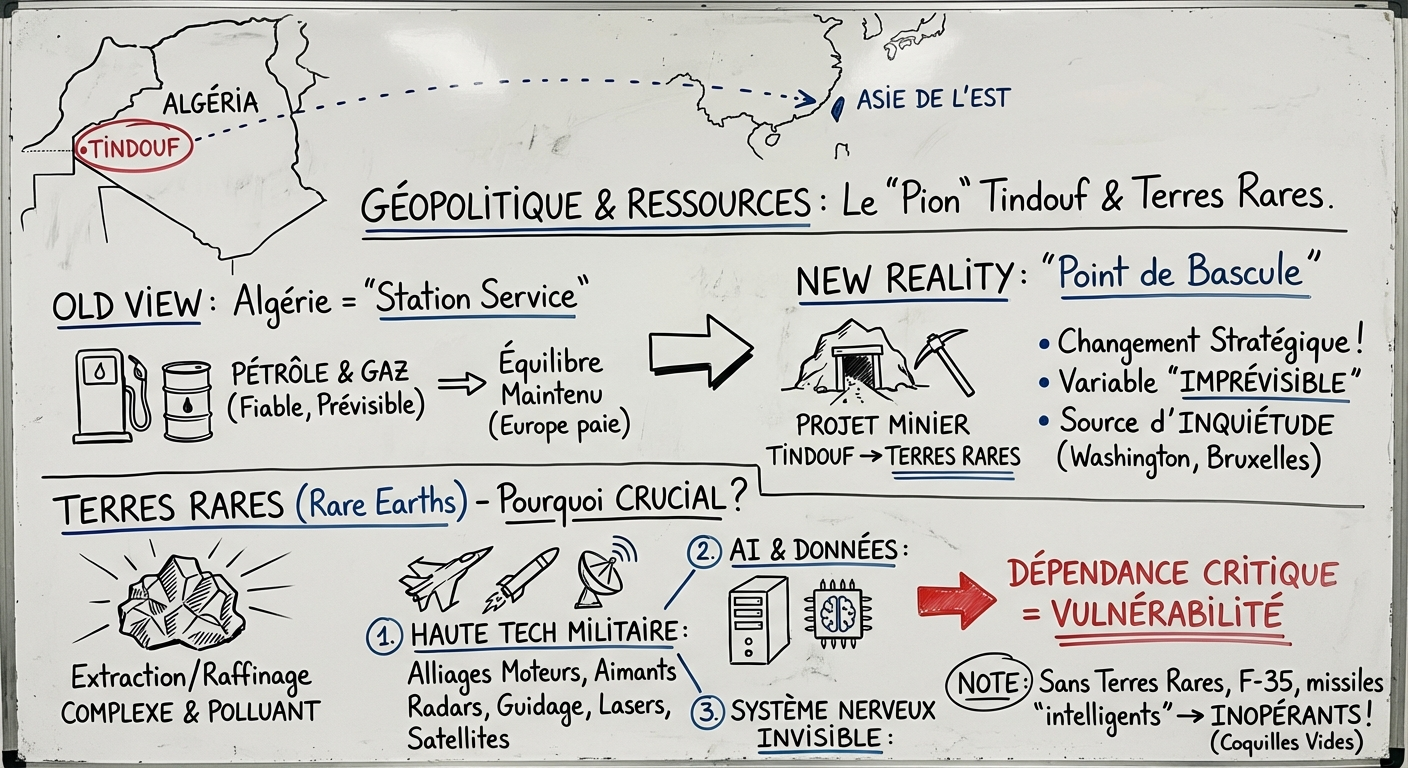 ALGÉRIA
TINDOUF
ASIE DE L'EST
GÉOPOLITIQUE & RESSOURCES : Le "Pion" Tindouf & Terres Rares.
OLD VIEW : Algérie = "Station Service"
PÉTRÔLE & GAZ
(Fiable, Prévisible)
Équilibre
Maintenu
(Europe paie)
NEW REALITY : "Point de Bascule"
PROJET MINIER
TINDOUF → TERRES RARES
• Changement Stratégique !
• Variable "IMPRÉVISIBLE"
• Source d'INQUIÉTUDE
(Washington, Bruxelles)
TERRES RARES (Rare Earths) - Pourquoi CRUCIAL ?
Extraction/Raffinage
COMPLEXE & POLLUANT
1. HAUTE TECH MILITAIRE :
Alliages Moteurs, Aimants
Radars, Guidage, Lasers,
Satellites
2. AI & DONNÉES :
3. SYSTÈME NERVEUX
INVISIBLE :
DÉPENDANCE CRITIQUE
= VULNÉRABILITÉ
NOTE: Sans Terres Rares, F-35, missiles
"intelligents" → INOPÉRANTS !
(Coquilles Vides)